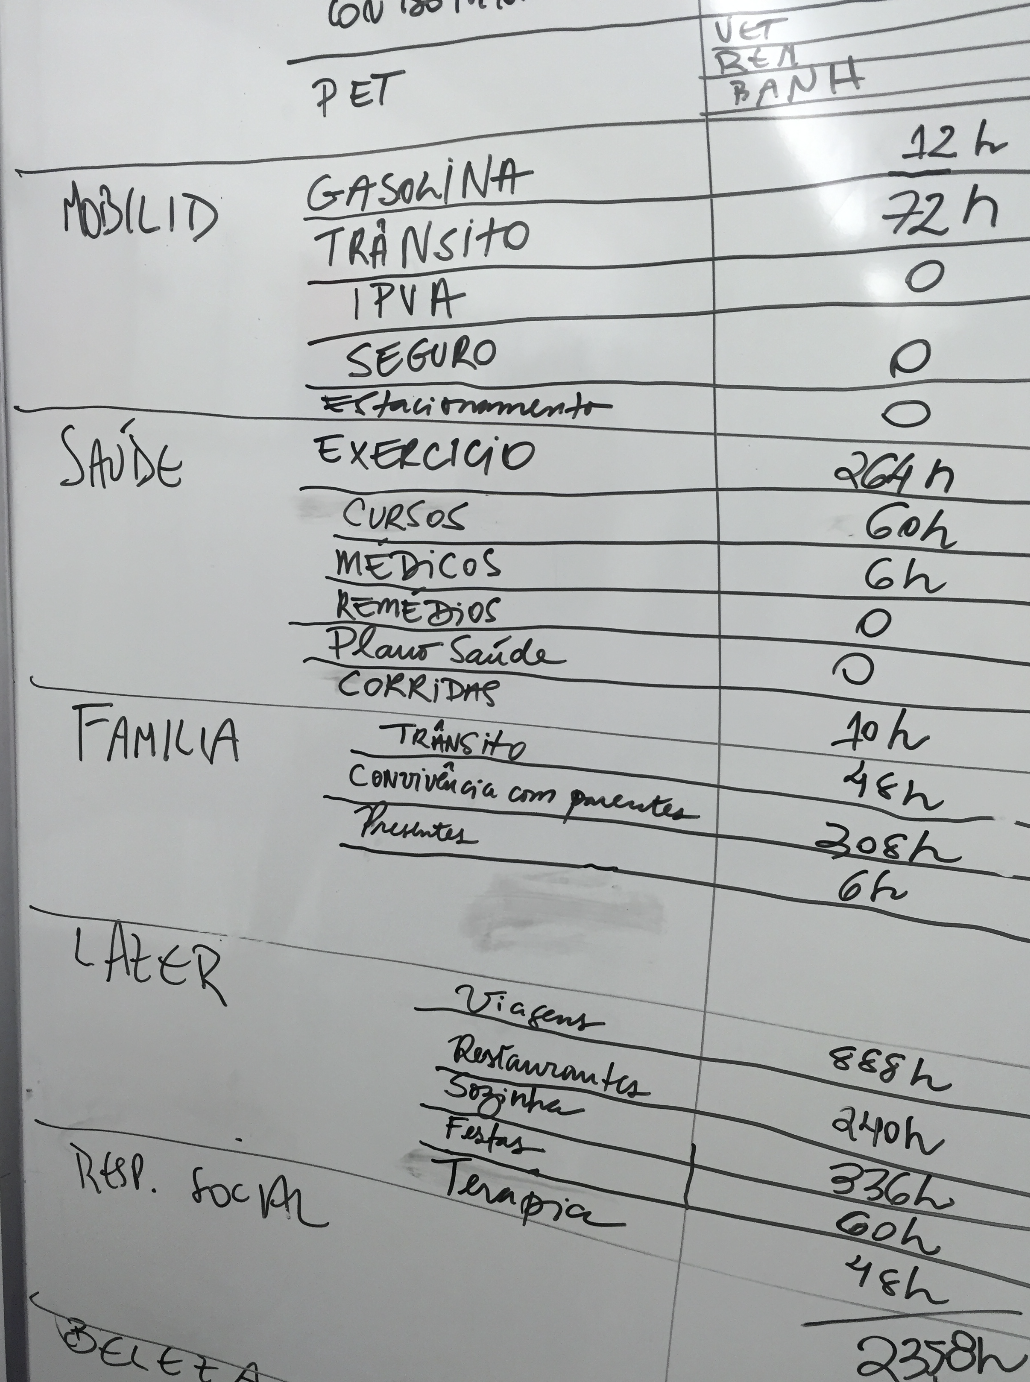 PET
VET
REM
BANH
MOBILID GASOLINA 12h
TRÂNSITO 72h
IPVA 0
SEGURO 0
Estacionamento 0
SAÚDE EXERCICIO 264h
CURSOS 60h
MÉDICOS 6h
REMÉDIOS 0
Plano Saúde 0
CORRIDAS 10h
FAMILIA TRÂNSITO 48h
Convivência com parentes 308h
Presentes 6h
LAZER Viagens 888h
Restaurantes 240h
Sozinha 336h
Festas 60h
Terapia 48h
RESP. SOCIAL
2358h
BELEZA